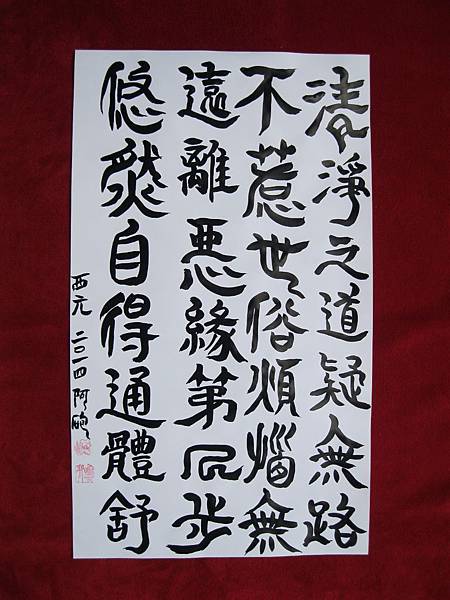 清淨之道疑無路
不惹世俗煩惱無
遠離惡緣第步
悠然自得通體舒
西元 二〇一四 阿